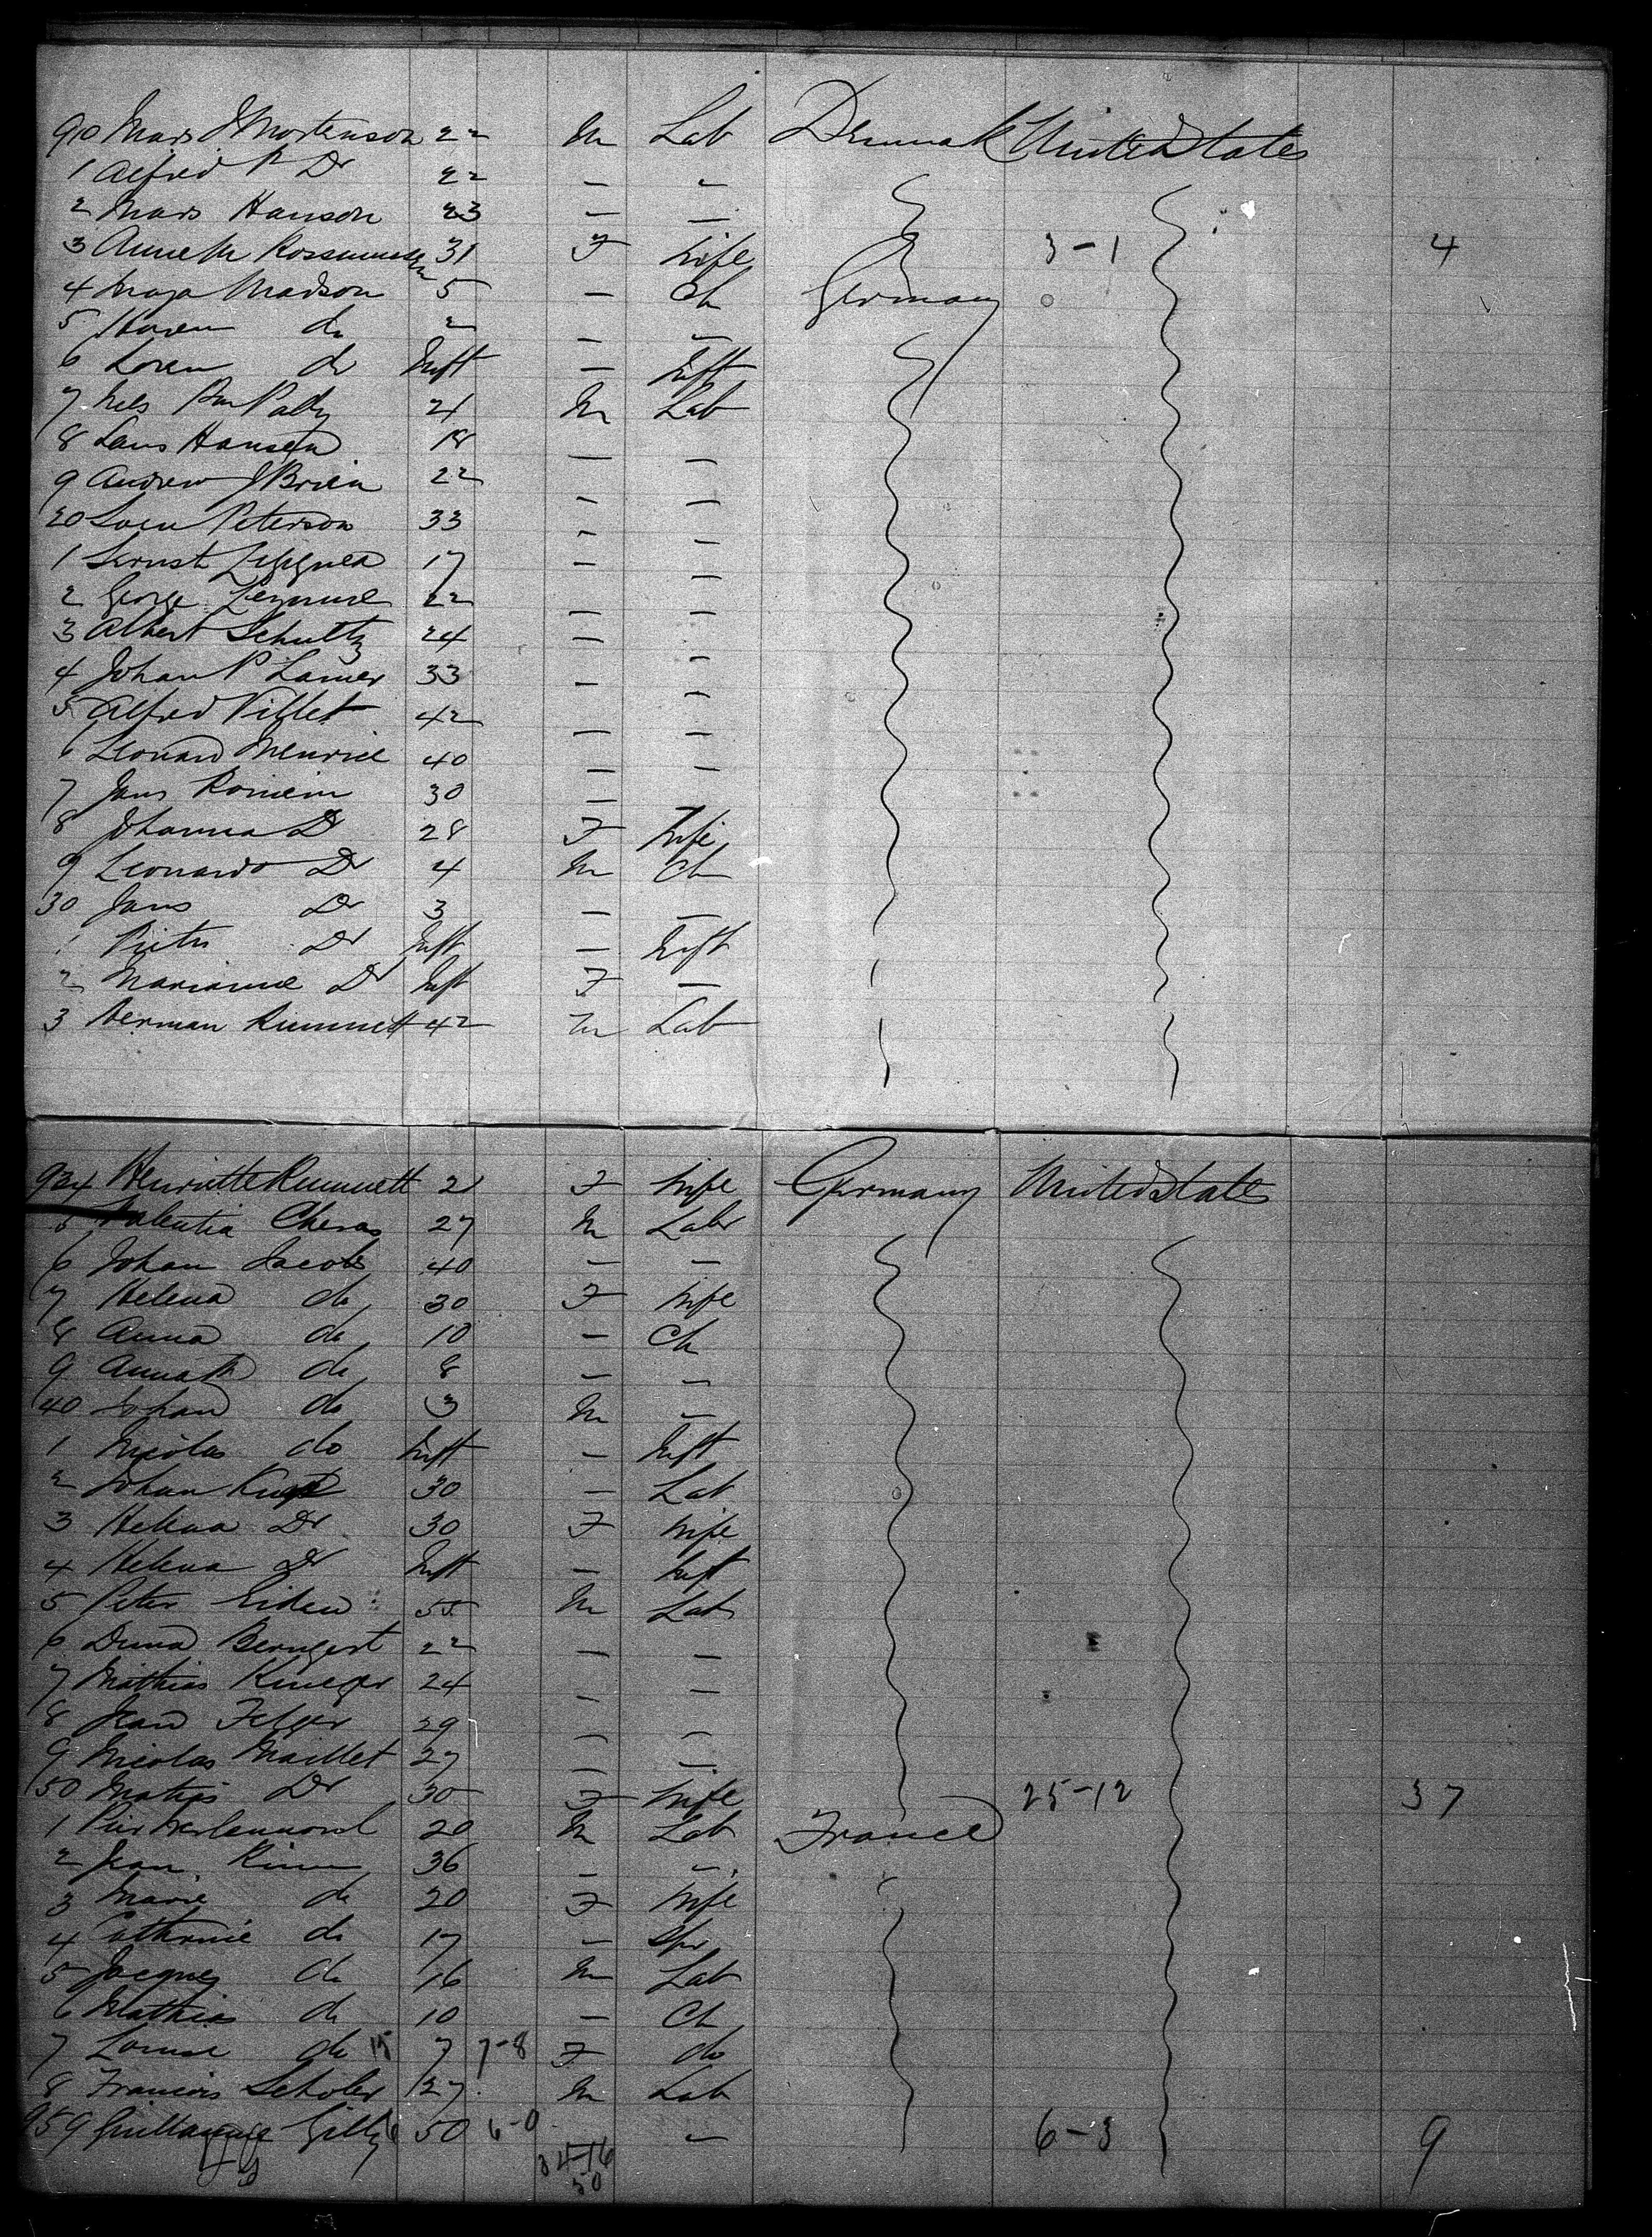 910 Mads J Mortenson 22 M Lab Denmark United States
1 Alfred P Do 22 — —
2 Mads Hanson 23 — —
3 Anne M Rossmussen 31 F Wife 3-1 4
4 Maja Madson 5 — Ch Germany
5 Karen do 2 — —
6 Loren do Inft — Inft
7 Nels 21 M Lab
8 Lans Hansen 18 — —
9 Andrew J Brien 22 — —
20 Soren Peterson 33 — —
1 Ernst 17 — —
2 George 22 — —
3 Albert Schultz 24 — —
4 Johan P Lamer 33 — —
5 Alfred Villet 42 — —
6 Leonard 40 — —
7 Jans 30 —
8 Johanna Do 28 F Wife
9 Leonardo Do 4 M Ch
30 Jans Do 3 — —
1 Pieter Do Inft — Inft
2 Marianne Do Inft F —
3 Herman Rummett 42 M Lab
934 Henriette Rummett 21 F Wife Germany United States
5 Valentia Cheras 27 M Labr
6 Johan Jacobs 40 — —
7 Helena do 30 F Wife
8 Anna do 10 — Ch
9 do 8 — —
40 Johan do 3 M —
1 Nicolas do Inft — Inft
2 Johan 30 — Lab
3 Helena Do 30 F Wife
4 Helena Do Inft — Inft
5 Peter Eiden 55 M Lab
6 22 — —
7 Mathias Krueger 24 — —
8 Jean Felger 29 — —
9 Nicolas Maillet 27 — —
50 Do 30 F Wife 25-12 37
1 20 M Lab France
2 Jean 36 — —
3 Marie do 20 F Wife
4 Cathrine do 17 — Spr
5 Jacques do 16 M Lab
6 Mathias do 10 — Ch
7 Louise do 15 7 7-8 F do
8 Francois Scholer 27 M Lab
959 Guillaume Gilly 6 50 6-0 — 6-3 9
34-16
50